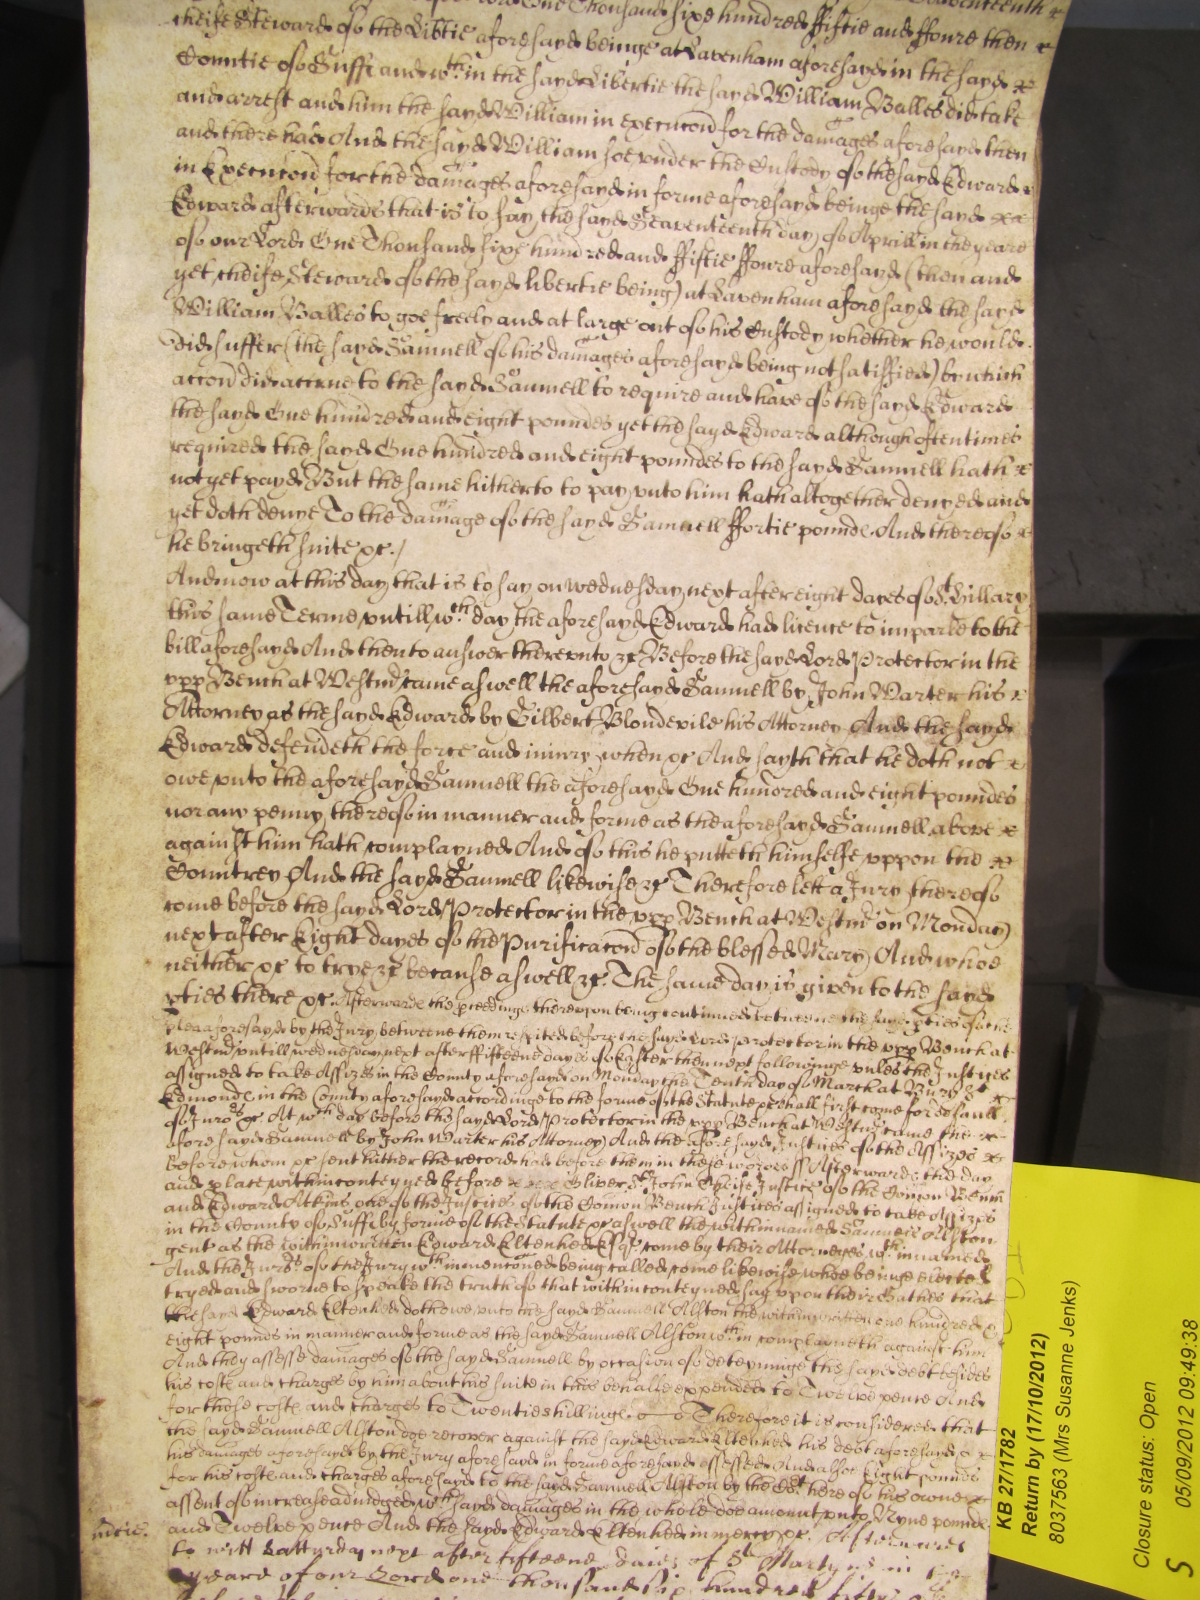 One Thousand sixe hundred ffiftie and ffoure then
cheife Steward of the Libtie aforesayd beinge at Lavenham aforesayd in the sayd
Countie of Suff and wthin the sayd Libertie the sayd William Balles did take
and arrest and him the sayd William in execucon for the damages aforesayd then
and there had And the sayd William soe under the Custody of the sayd Edward
in Execucon for the damages aforesayd in forme aforesayd beinge the sayd
Edward afterwards that is to say the sayd Seaventeenth day of Aprill in the yeare
of our Lord One Thousand sixe hundred and ffiftie ffoure aforesayd (then and
yet cheife Steward of the sayd libertie being) at Lavenham aforesayd the sayd
William Balles to goe freely and at large out of his Custody whether he would
did suffer (the sayd Samuell of his damages aforesayd being not satisfied) by which
accon did accrue to the sayd Samuell to require and have of the sayd Edward
the sayd One hundred and eight poundes yet the sayd Edward although oftentimes
required the sayd One hundred and eight poundes to the sayd Samuell hath
not yet payd But the same hitherto to pay unto him hath altogether denyed and
yet doth denye To the damage of the sayd Samuell ffortie pound And thereof
he bringeth suite &c./
And now at this day that is to say on Wednesday next after eight dayes of St. Hillary
this same Terme untill wth. day the aforesayd Edward had licence to imparle to the
bill aforesayd And then to answer thereunto &c Before the sayd Lord Protector in the
upp Bench at Westm came aswell the aforesayd Samuell by John Warter his
Attorney as the sayd Edward by Gilbert Blondevile his Attorney And the sayd
Edward defendeth the force and iniury when &c And sayth that he doth not
owe unto the aforesayd Samuell the aforesayd One hundred and eight poundes
nor any penny thereof in manner and forme as the aforesayd Samuell above
against him hath complayned And of this he putteth himselfe uppon the
Countrey And the sayd Samuell likewise &c Therefore lett a Jury thereof
come before the sayd Lord Protector in the upp Bench at Westm on Monday
next after Eight dayes of the Purificacon of the blessed Mary And whoe
neither &c to trye &c because aswell &c. The same day is given to the sayd
pties there &c. Afterwards the pceedings thereupon being continued betweene the sayd pties of the
plea aforesayd by the Jury betweene them respited before the sayd Lord Protector in the upp Bench at
Westm untill Wednesday next after ffifteene dayes of Easter then next followinge unles the Justices
assigned to take Assizes in the County aforesayd on Monday the Tenth day of March at Bury St
Edmond in the County aforesayd accordinge to the forme of the Statute &c shall first come for default
of Jurors &c. At wch day before the sayd Lord Protector in the upp Bench at Westm came the
aforesayd Samuell by John Warter his Attorney And the aforesayd Justices of the Assizes
before whom &c sent hither the record had before them in these wordes ss Afterwards the day
and place within conteyned before Oliver St John Cheife Justice of the Comon Bench
and Edward Atkins one of the Justices of the Comon Bench Justices assigned to take Assizes
in the County of Suff by forme of the Statute &c aswell the within named Samuel Alston
gent as the within written Edward Eltenhed Esqr. come by their Attorneyes wthin named
And the Jurors of the Jury wthin mencioned being called come likewise whoe beinge elected
tryed and sworne to speake the truth of that within conteyned say upon their Oathes that
the sayd Edward Eltenhed doth owe unto the sayd Samuell Alston the within written one hundred &
eight pounds in manner and forme as the sayd Samuell Alston wthin complayneth against him
And they assesse damages of the sayd Samuell by occasion of deteyninge the sayd debt besides
his coste and charges by him about his suite in this behalfe expended to Twelve pence And
for those coste and charges to Twentie shillinge Therefore it is considered that
the sayd Samuell Alston doe recover against the sayd Edward Eltenhed his debt aforesayd &
his damages aforesayd by the Jury aforesayd in forme aforesayd assessed And alsoe Eight pounds
for his coste and charges aforesayd to the sayd Samuell Alston by the Cort here of his owne
assent of increase adiudged wch sayd damages in the whole doe amount unto Nyne pound
and Twelve pence And the sayd Edward Eltenhed in mercy &c. Afterwards
to witt Satturday next after fifteene daies of St Martyn in
yeare of our Lord one thousand six hundred fifty
KB 27/1782
Return by (17/10/2012)
8037563 (Mrs Susanne Jenks)
Closure status: Open
05/09/2012 09:49:38
S